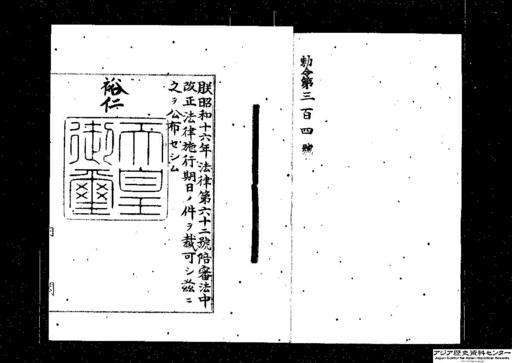 勅令第三百四號
朕昭和十六年法律第六十二號陪審法中
改正法律施行期日ノ件ヲ裁可シ茲ニ
之ヲ公布セシム
裕仁
天皇
御璽
アジア歴史資料センター
Japan Center for Asian Historical Records